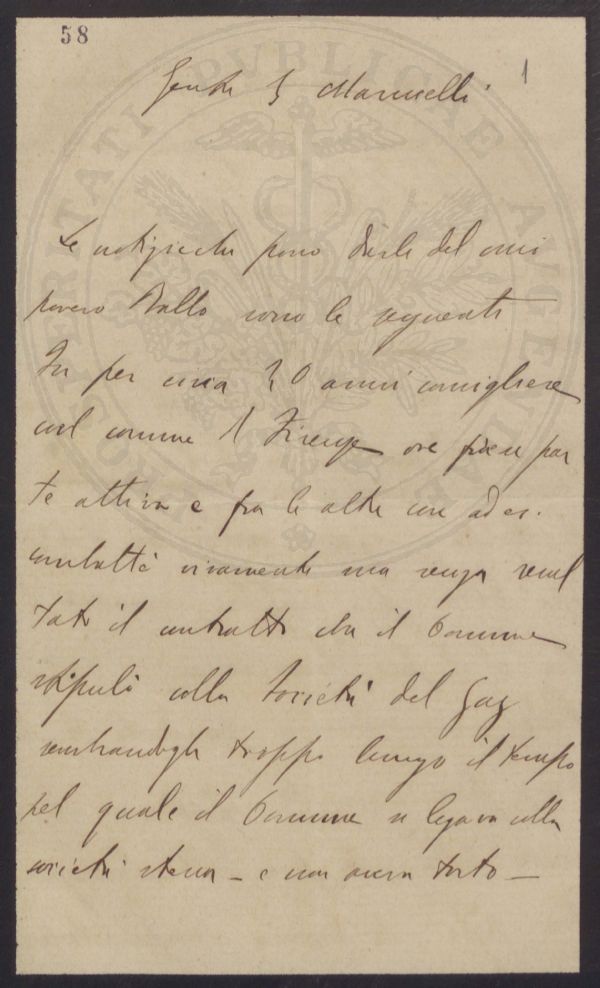 58
1
Marinelli
Le notizie che posso dirle del mio
povero Babbo sono le seguenti
Fu per circa 20 anni consigliere
nel comune di Firenze ove prese par
te attiva e fra le altre cose ad es.
combattè vivamente ma senza resul
tato il contratto che il Comune
stipulò colla Società del Gaz
sembrandogli troppo lungo il tempo
pel quale il Comune si legava colla
società stessa – e non aveva torto –